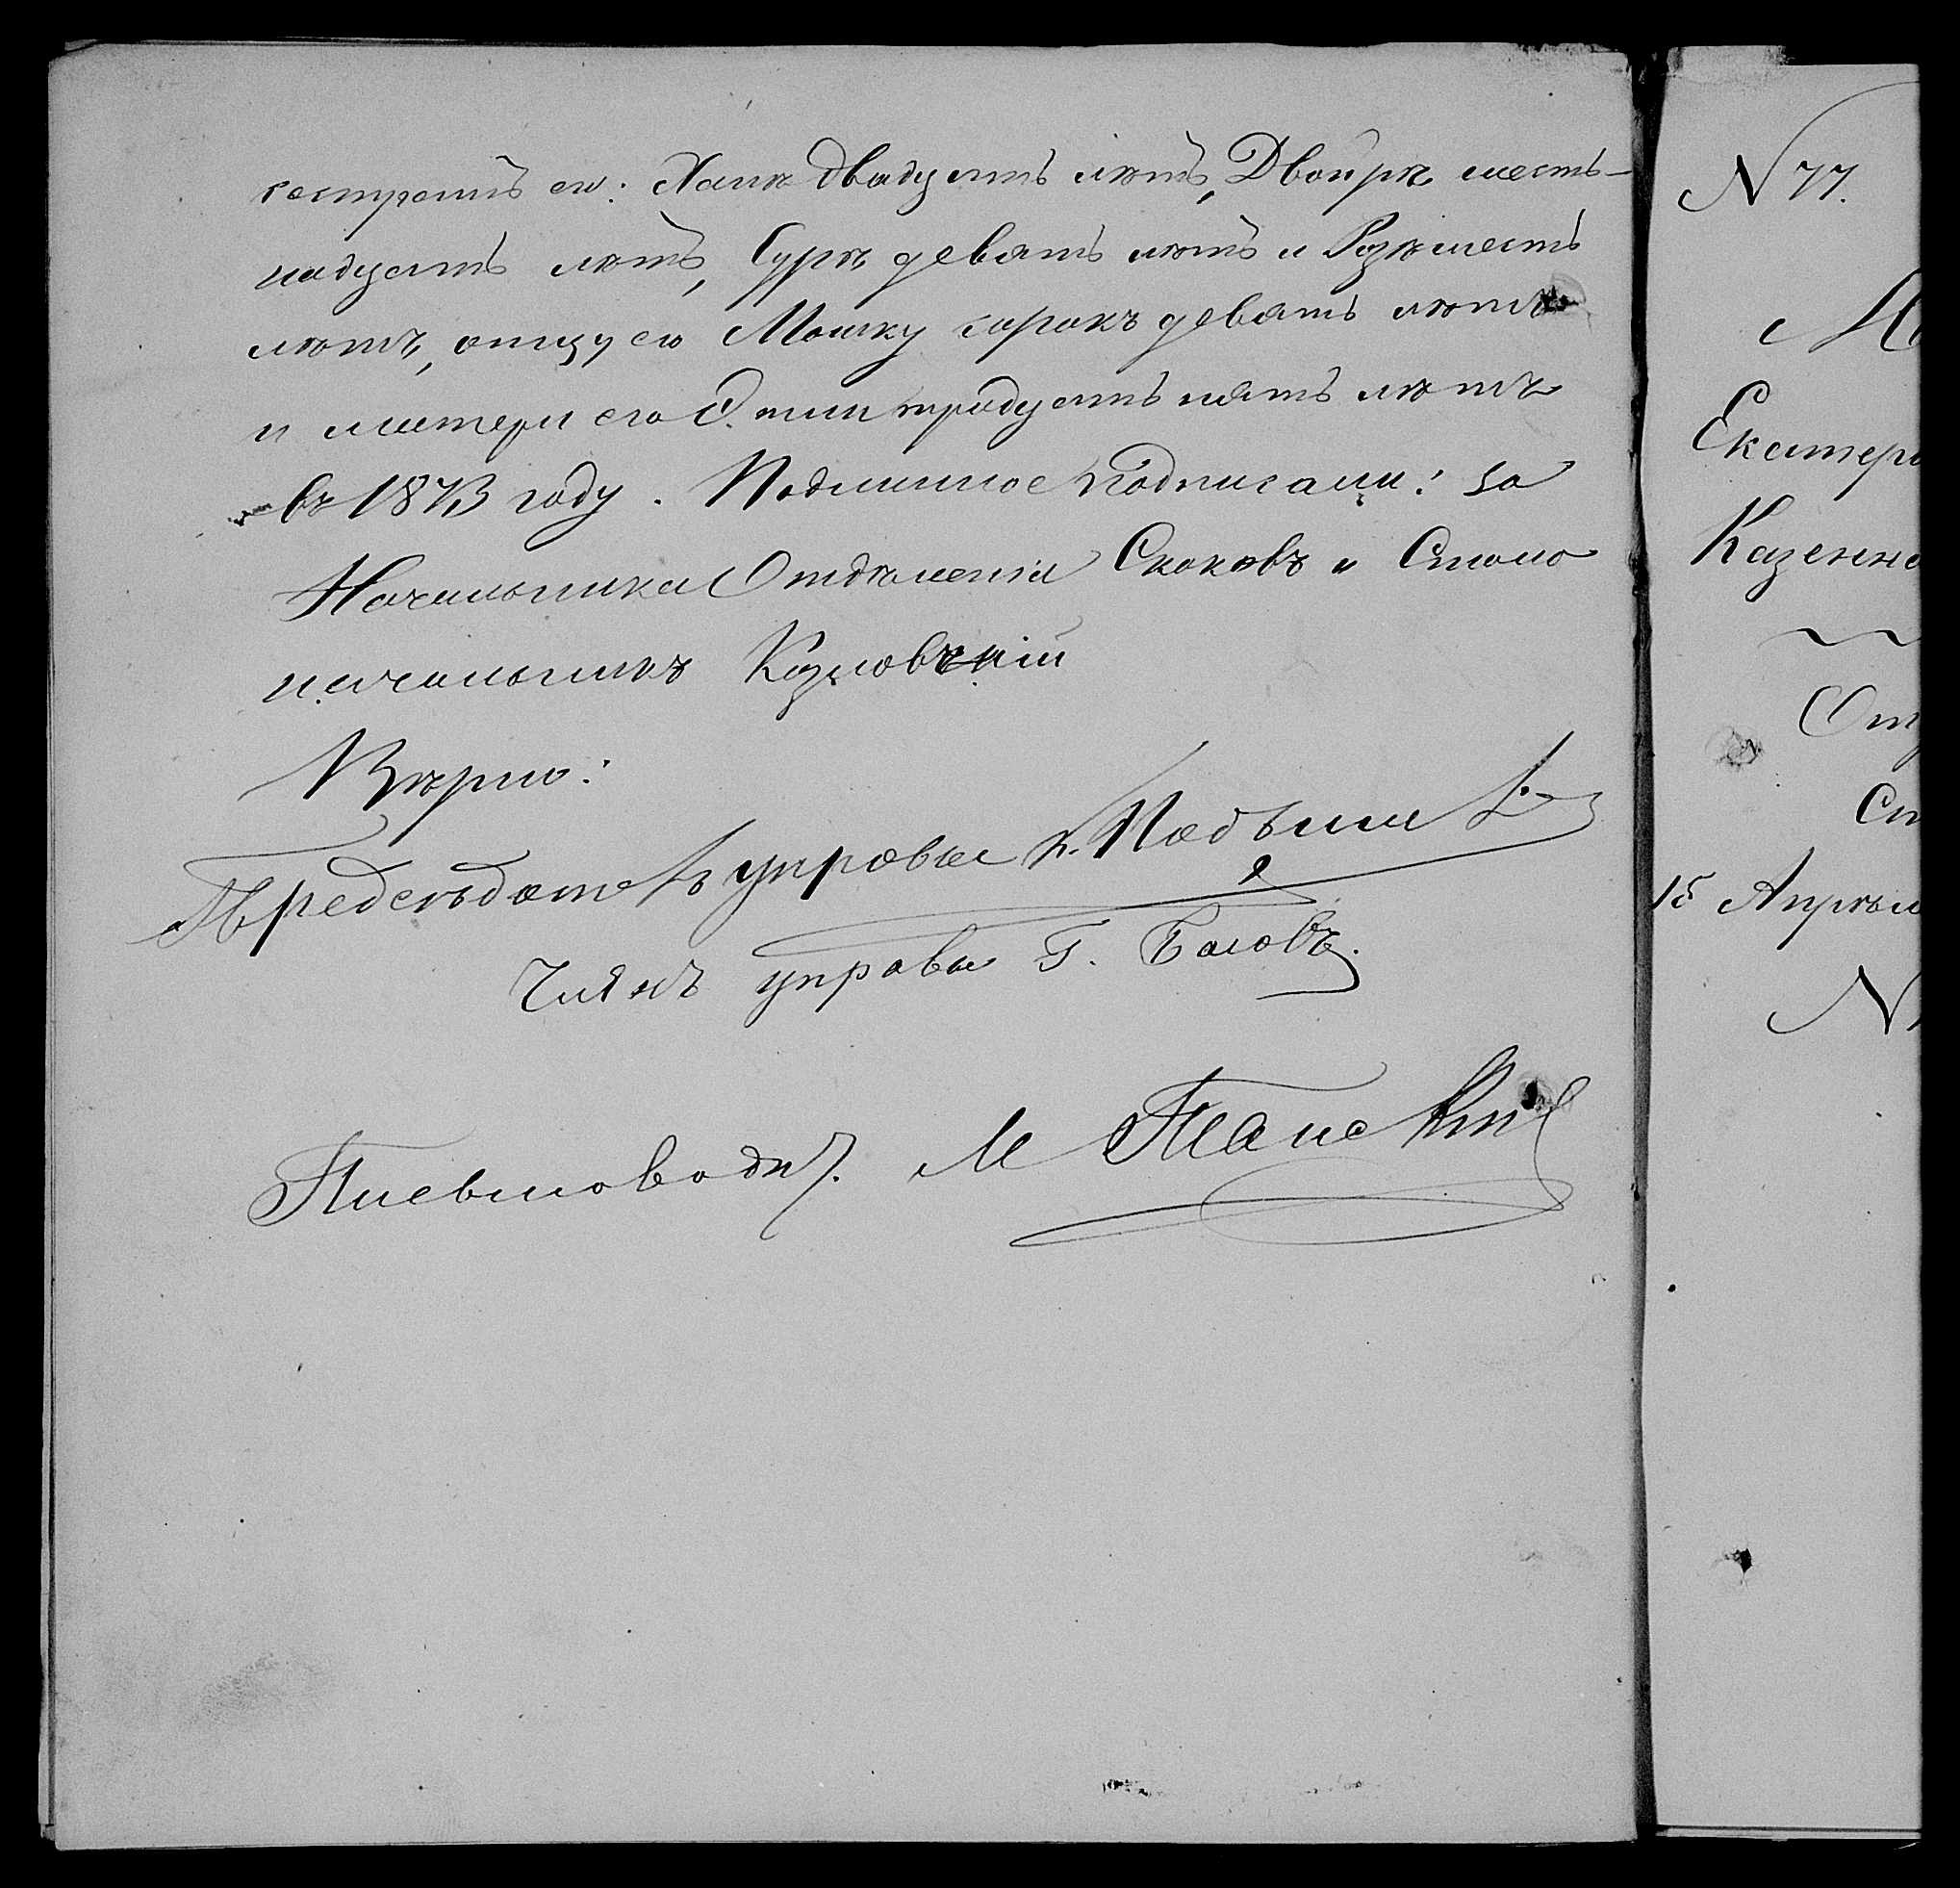 сестрамъ его: Ханѣ двадцать лѣтъ, Двойрѣ шесть-
надцать лѣтъ, Сурѣ девять лѣтъ и Розѣ шесть
лѣтъ, отцу его Мошку сорокъ девять лѣтъ
и матери его тридцать пять лѣтъ
въ 1873 году. Подлинное подписали: за
Начальника Отдѣленія Скоковъ и Столо
начальникъ Козловскій
Вѣрно:
Предсѣдатель управы
Членъ управы Г. Баловъ.
Письмоводит. М
N 77.
М
Екатери
Казенно
От
Ст
15 Апрѣл
N